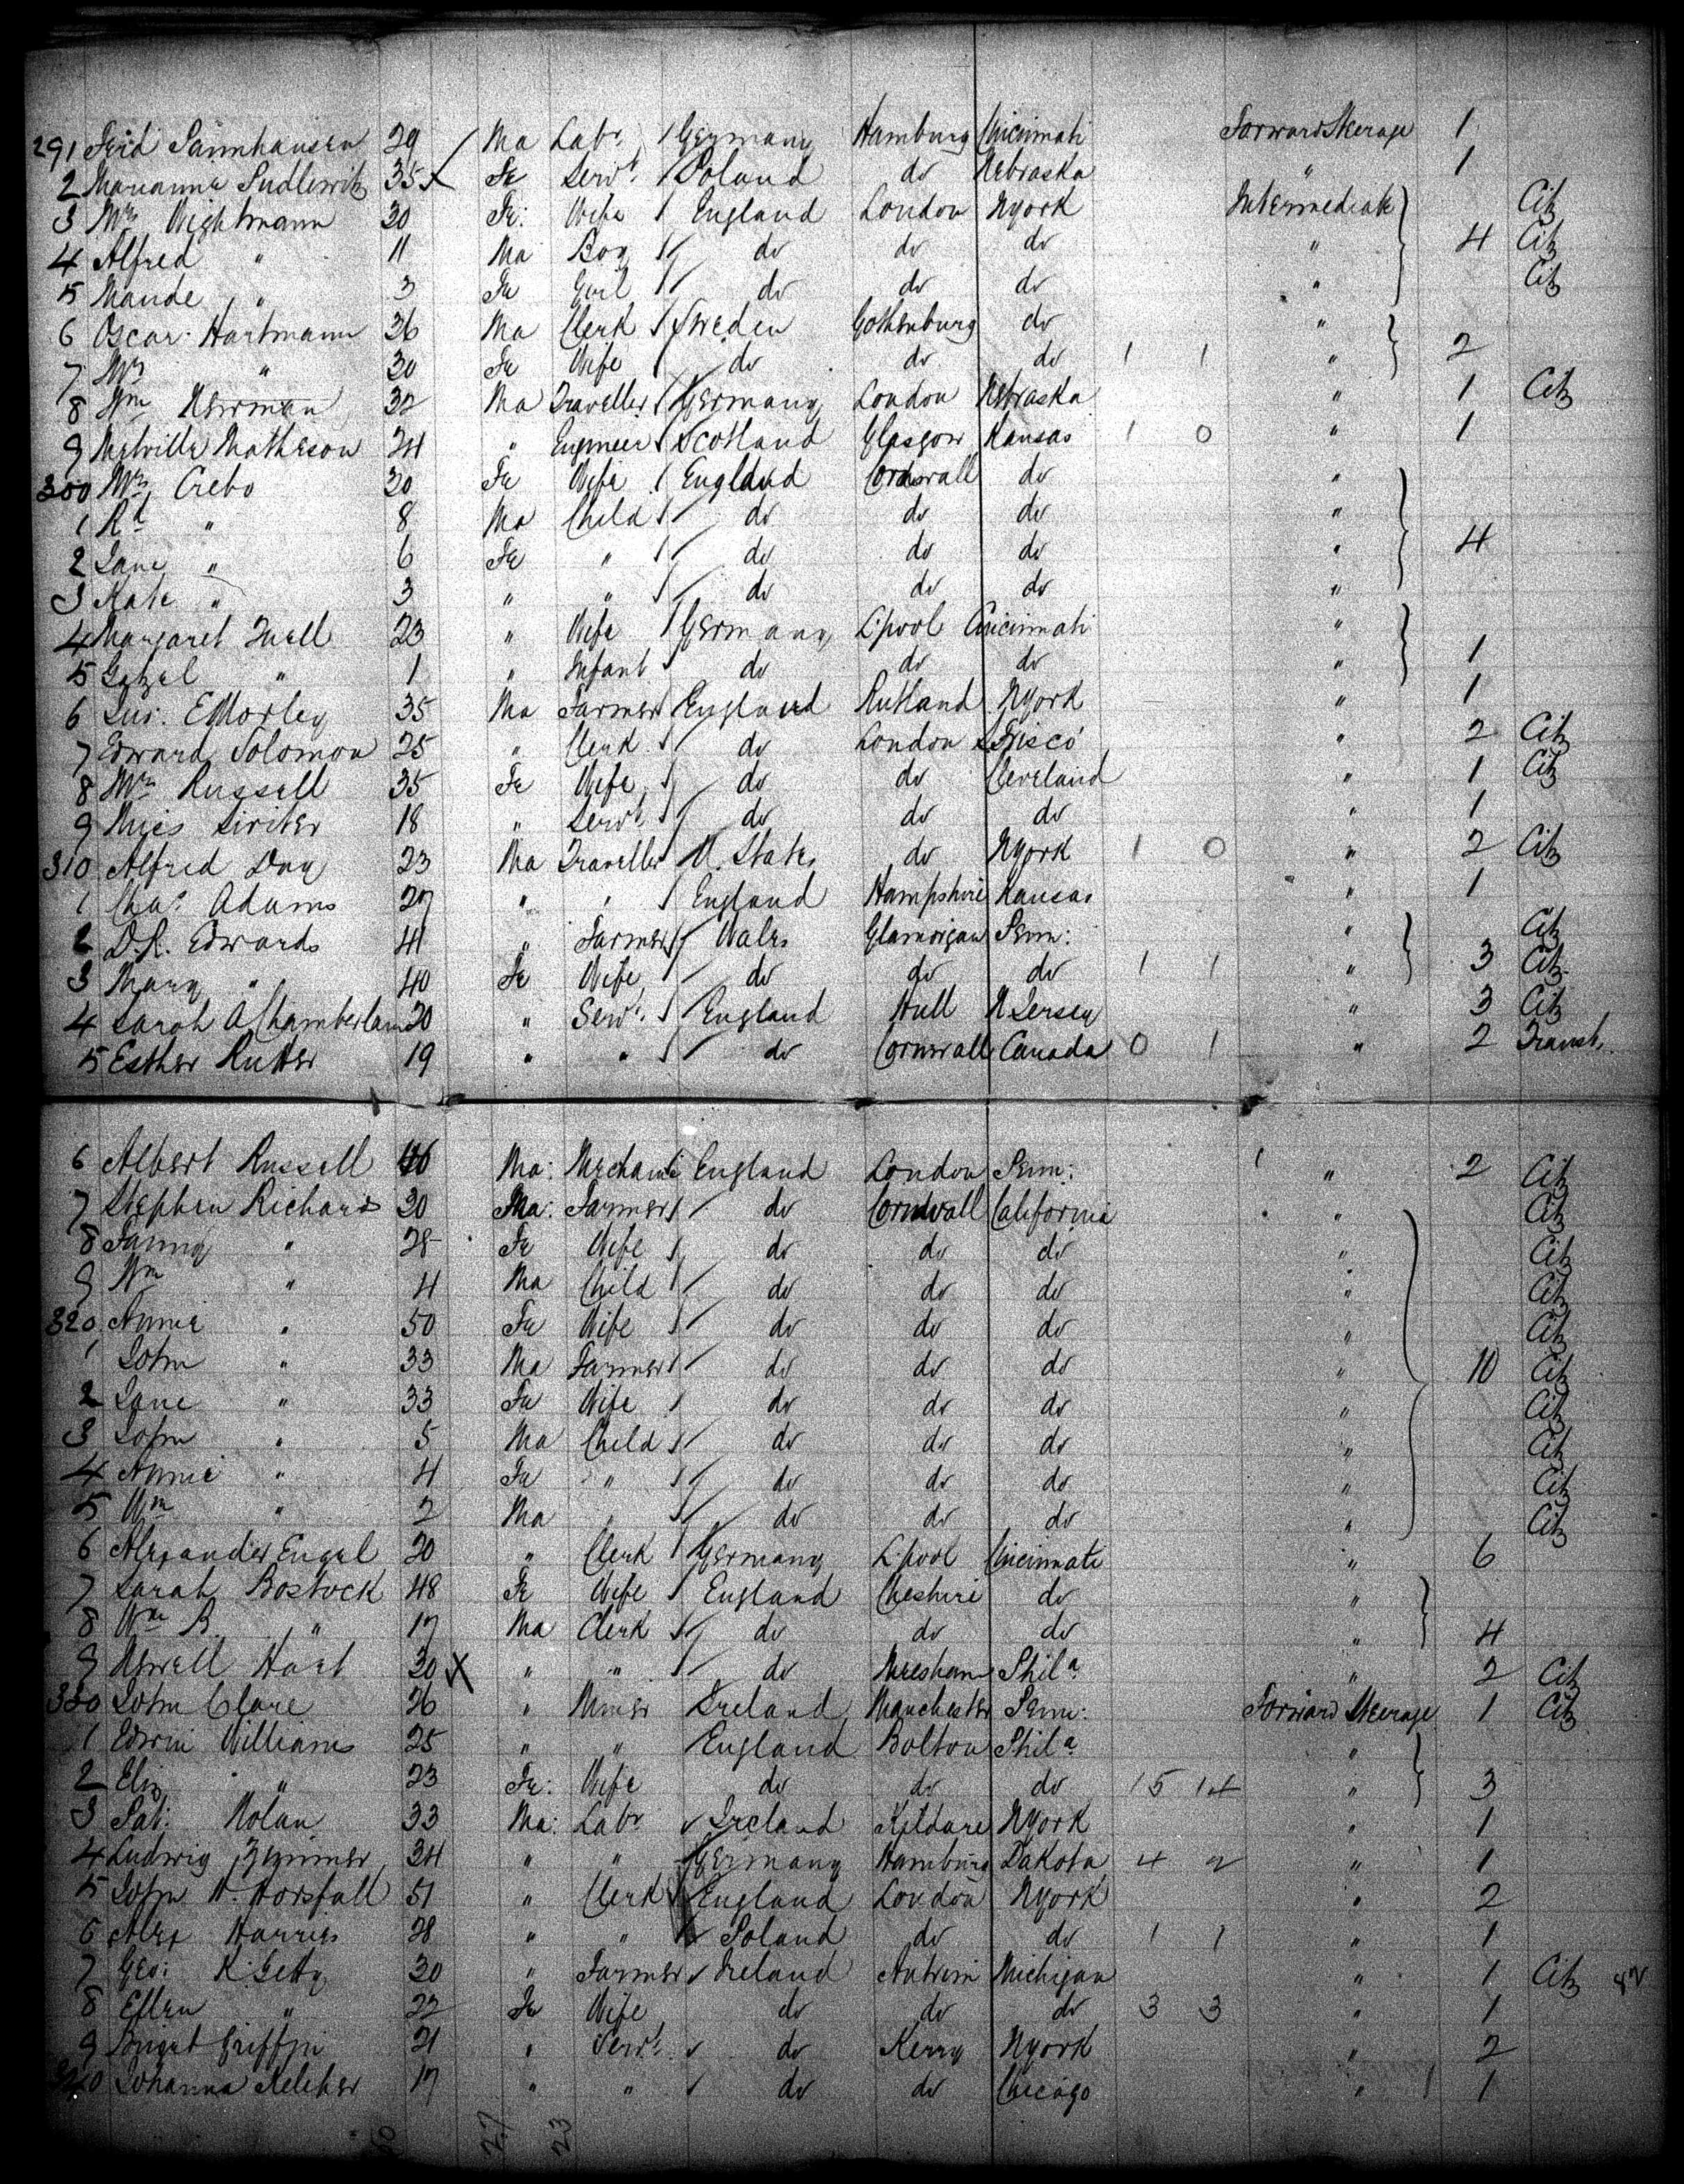 291 Ferd Sannhausen 29 Ma Labr Germany Hamburg Cincinnati Forward Steerage 1
2 Marianna Sudlewitz 35 Fe Servt Poland do Nebraska " 1
3 Mrs Wightmann 30 Fe: Wife England London NYork Intermediate Citz
4 Alfred " 11 Ma Boy do do do " 4 Citz
5 Maude " 3 Fe Girl do do do " Citz
6 Oscar Hartmann 36 Ma Clerk Sweden Gothenburg do "
7 Mrs " 30 Fe Wife do do do 1 1 " 2
8 Wm Newman 32 Ma Traveller Germany London Nebraska " 1 Citz
9 Melville Matheson 24 " Engineer Scotland Glasgow Kansas 1 0 " 1
300 Mrs Crebo 30 Fe Wife England Cornwall do "
1 Rd " 8 Ma Child do do do "
2 Jane " 6 Fe " do do do " 4
3 Kate " 3 " " do do do "
4 Margaret 23 " Wife Germany L'pool Cincinnati "
5 " 1 " Infant do do do " 1
6 EMorley 35 Ma Farmer England Rutland NYork " 1
7 Edward Solomon 25 " Clerk do London SFrisco " 2 Citz
8 Mrs Russell 35 Fe Wife do do Cleveland " 1 Citz
9 Miss 18 " Servt do do do " 1
310 Alfred Day 23 Ma Traveller U. States do NYork 1 0 " 2 Citz
1 Chas. Adams 27 " " England Hampshire Kansas " 1
2 D.R. Edwards 41 " Farmer Wales Glamorgan Penn: " Citz
3 Mary " 40 Fe Wife do do do 1 1 " 3 Citz
4 Sarah A Chamberlain 20 " Servt. England Hull NJersey " 3 Citz
5 Esther Rutter 19 " " do Cornwall Canada 0 1 " 2 Transt.
6 Albert Russell 46 Ma: Mechanic England London Penn: " 2 Citz
7 Stephen Richards 30 Ma: Farmer do Cornwall California " Citz
8 Fanny " 28 Fe Wife do do do " Citz
9 Wm " 4 Ma Child do do do " Citz
320 Annie " 50 Fe Wife do do do " Citz
1 John " 33 Ma Farmer do do do " 10 Citz
2 Jane " 33 Fe Wife do do do " Citz
3 John " 5 Ma Child do do do " Citz
4 Annie " 4 Fe " do do do " Citz
5 Wm " 2 Ma " do do do " Citz
6 Alexander Engel 20 " Clerk Germany L'pool Cincinnati " 6
7 Sarah Bostock 48 Fe Wife England Cheshire do "
8 Wm B. " 17 Ma Clerk do do do " 4
9 Newell Hart 30 X " " do Phila " 2 Citz
330 John Clare 26 " Miner Ireland Manchester Penn: Forward Steerage 1 Citz
1 Edwin Williams 25 " " England Bolton Phila "
2 Eliz " 23 Fe: Wife do do do 15 14 " 3
3 Pat: Nolan 33 Ma: Labr Ireland Kildare NYork " 1
4 Ludwig Zimmer 34 " " Germany Hamburg Dakota 4 2 " 1
5 John W. Horsfall 51 " Clerk England London NYork " 2
6 Alex Harris 28 " " Poland do do 1 1 " 1
7 Geo: K Getty 30 " Farmer Ireland Antrim Michigan " 1 Citz
8 Ellen " 22 Fe Wife do do do 3 3 " 1
9 Bridget Griffin 21 " Servt. do Kerry NYork " 2
340 Johanna Keleher 17 " " do do Chicago " 1
27 23